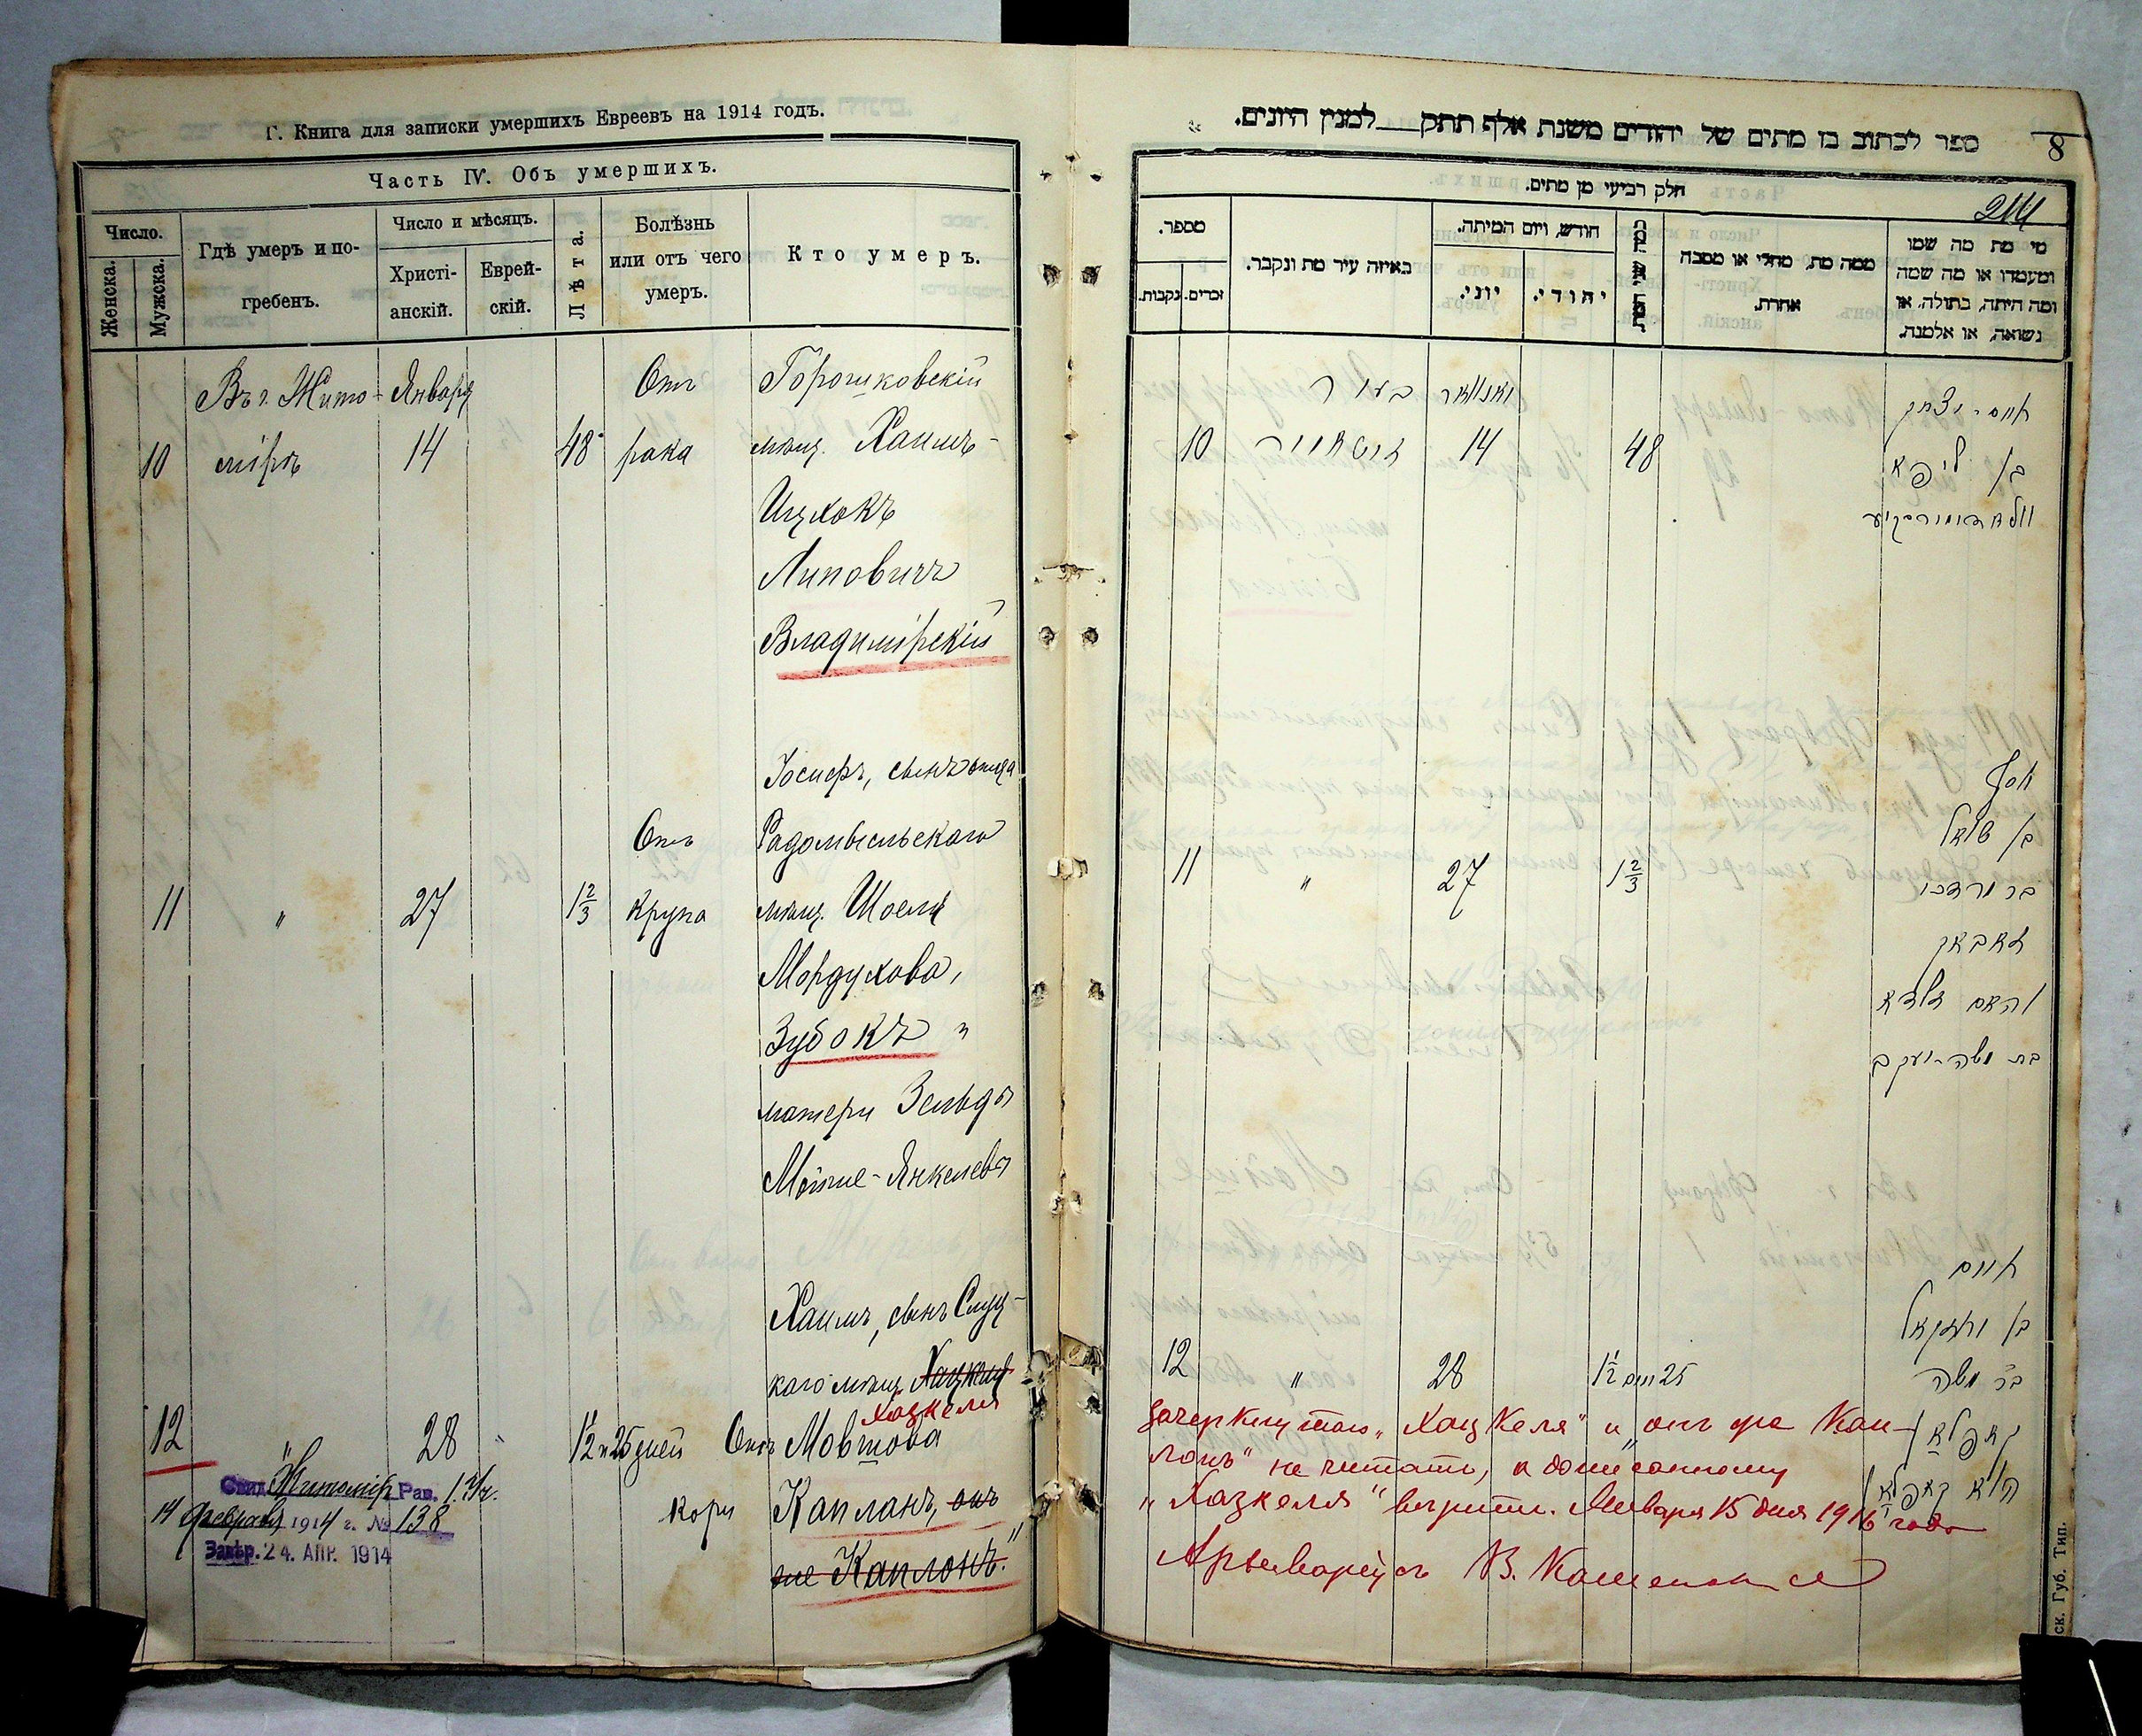 Г. Книга для записки умершихъ Евреевъ на 1914 годъ.
Часть IV. Объ умершихъ.
Число.
Женска.
Мужска.
Гдѣ умеръ и по-
гребенъ.
Число и мѣсяцъ.
Христі-
анскій.
Еврей-
скій.
Лѣта.
Болѣзнь
или отъ чего
умеръ.
Кто умеръ.
Въ г. Жито- Января Отъ Горошковскій
10 мірѣ 14 48 рака мѣщ. Хаимъ-
Ицхокъ
Липовичъ
Владимірскій
Іосифъ, сынъ отца
Отъ Радомысльскаго
11 " 27 1 2/3 крупа мѣщ. Шоеля
Мордухова,
Зубокъ и
матери Зельды
Мошко-Янкелевы
Хаимъ, сынъ Слуц-
каго мѣщ. Хацкеля
Хазкеля
12 " 28 " 1 1/2 и 25 дней Отъ Мовшова
кори Капланъ, онъ
же Каплонъ."
Свид. Житомір. Рав.
14 февраля 1914 г. № 138
Завѣр. 24. АПР. 1914
ספר לכתוב בו מתים של יהודים משנת אלף תתק למנין היונים.
8
214
חלק רביעי מן מתים.
מספר.
זכרים.
נקבות.
באיזה עיר מת ונקבר.
חודש, ויום המיתה.
יוני.
יהודי.
כמה שני המת.
ממה מת, מחלי או מסבה
אחרת.
מי מת מה שמו
ומעמדו או מה שמה
ומה היתה, בתולה, או
נשואה, או אלמנה.
בעיר יאנואר חיים-יצחק
10 זיטאמיר 14 48 בן ליפא
וולאדימירסקיע
יוסף
בן שואל
11 " 27 1 2/3 בר מרדכי
זובאק
והאם זעלדא
בת משה-יעקב
חיים
בן יחזקאל
12 " 28 1 1/2 25 בר משה
קאפלאן
הוא קאפלאן
Зачеркнутое „Хацкеля" и „онъ же Кап-
лонъ" не читать, а дописанному
„Хазкеля" вѣрить. Января 15 дня 1916 года
Архиваріусъ В.
ск. Губ. Тип.